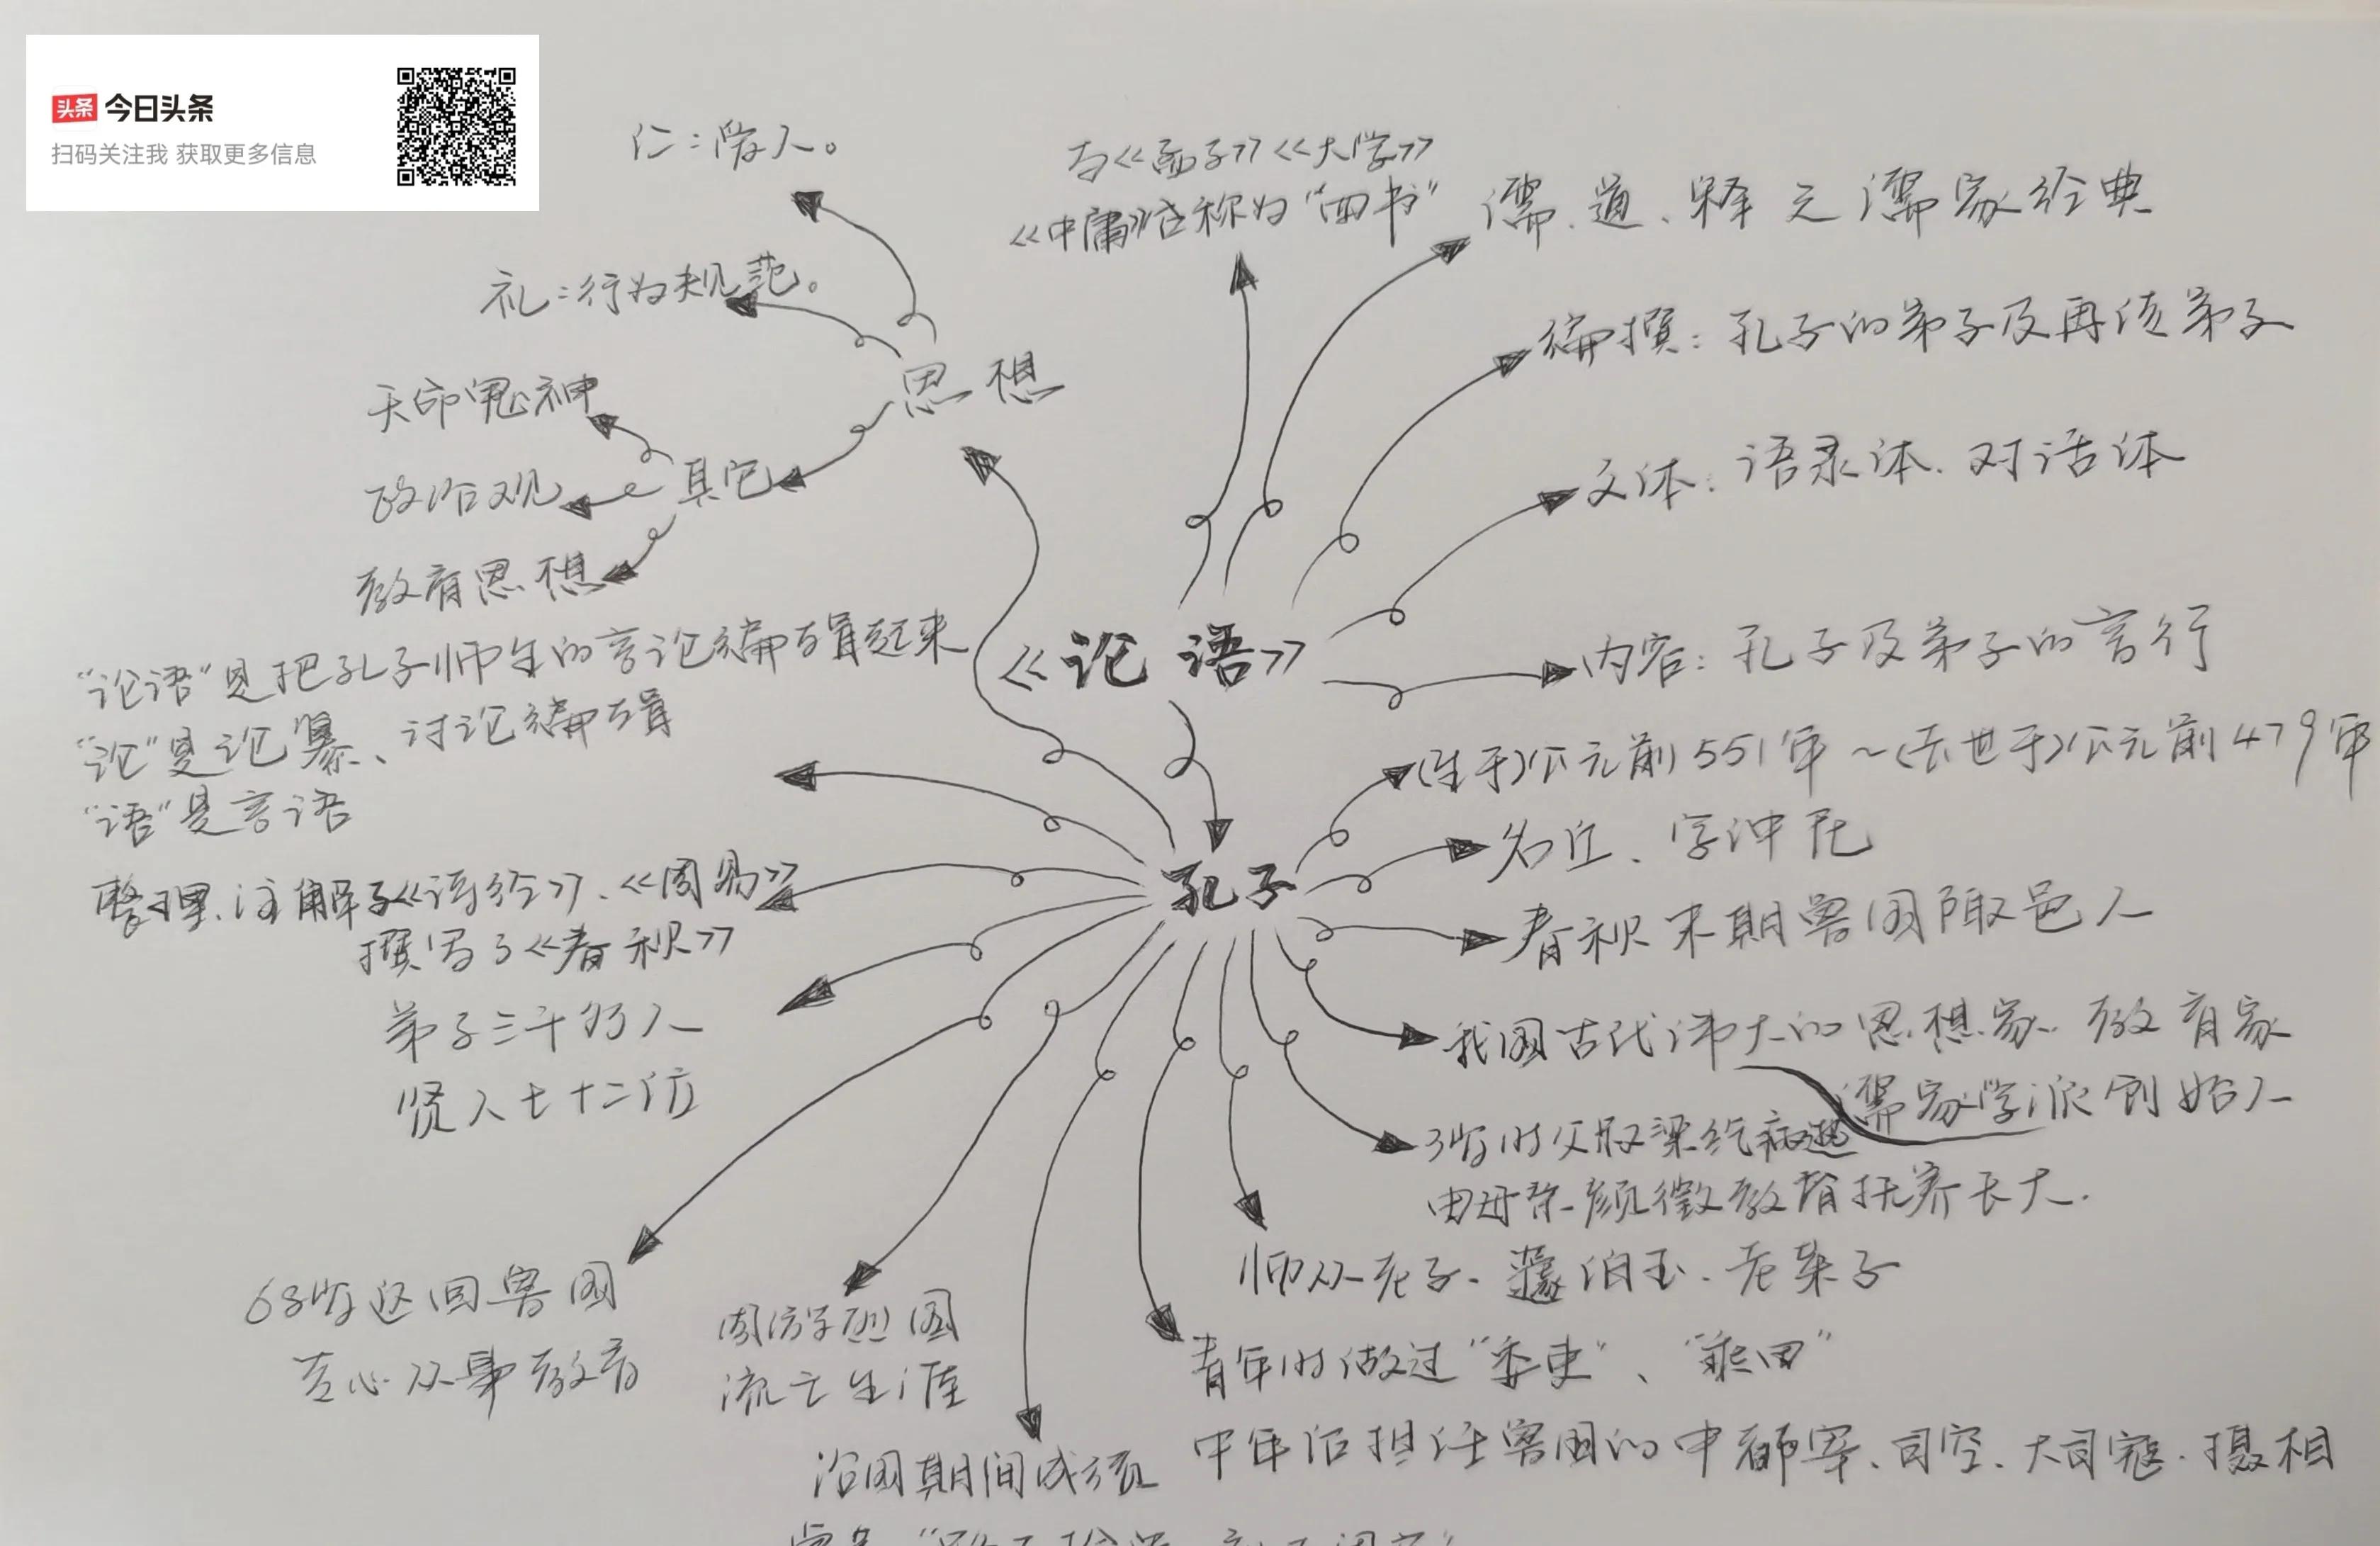 头条 今日头条
扫码关注我 获取更多信息
仁：爱人。
礼：行为规范。
思想
天命鬼神
政治观
其它
教育思想
与《孟子》《大学》
《中庸》合称为“四书”
儒、道、释之儒家经典
编撰：孔子的弟子及再传弟子
文体：语录体、对话体
内容：孔子及弟子的言行
《论语》
“论语”是把孔子师生的言论编辑起来
“论”是论纂、讨论编辑
“语”是言语
整理、注解了《诗经》、《周易》
撰写了《春秋》
弟子三千多人
贤人七十二位
孔子
(生于)公元前551年~(去世于)公元前479年
名丘、字仲尼
春秋末期鲁国陬邑人
我国古代伟大的思想家、教育家
儒家学派创始人
3岁时父叔梁纥病逝
由母亲颜徵教育抚养长大.
师从老子、蘧伯玉、老莱子
青年时做过“委吏”、“乘田”
中年后担任鲁国的中都宰、司空、大司寇、摄相
68岁返回鲁国
专心从事教育
周游列国
流亡生涯
治国期间成绩